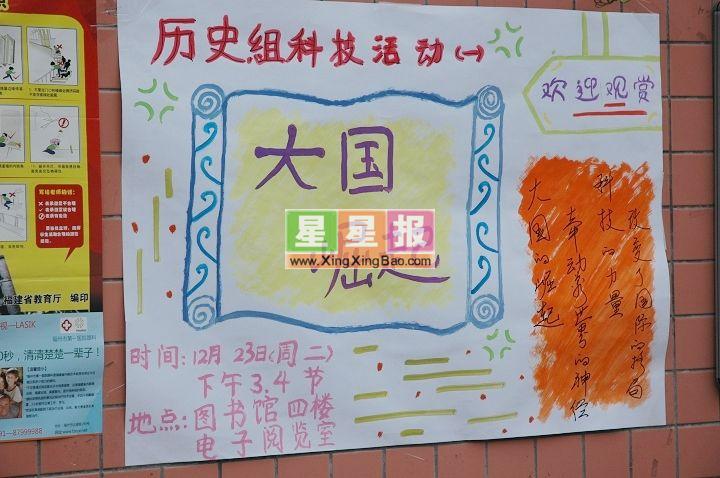 历史组科技活动(一)
欢迎观赏
大国
崛起
星星报
www.XingXingBao.com
时间:12月23日(周二)
下午3.4节
地点:图书馆四楼
电子阅览室
改变了国际的格局
科技的力量
牵动着
的神经
大国的崛起
福建省教育厅 编印
视—LASIK
福州市第一医院眼科
0秒,清清楚楚一辈子!
91—87999988